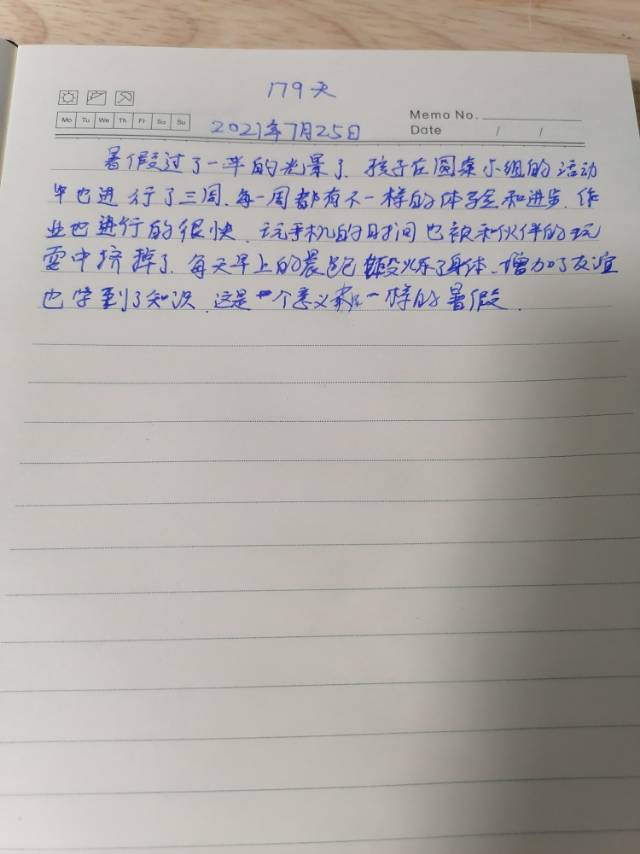 179天
Mo Tu We Th Fr Sa Su
Memo No.
2021年7月25日
Date / /
暑假过了一半的光景了.孩子在圆桌小组的活动
中也进行了三周、每一周都有不一样的体验和进步.作
业也进行的很快.玩手机的时间也被和伙伴的玩
耍中挤掉了.每天早上的晨跑锻炼了身体、增加了友谊
也学到了知识.这是一个意义不一样的暑假.